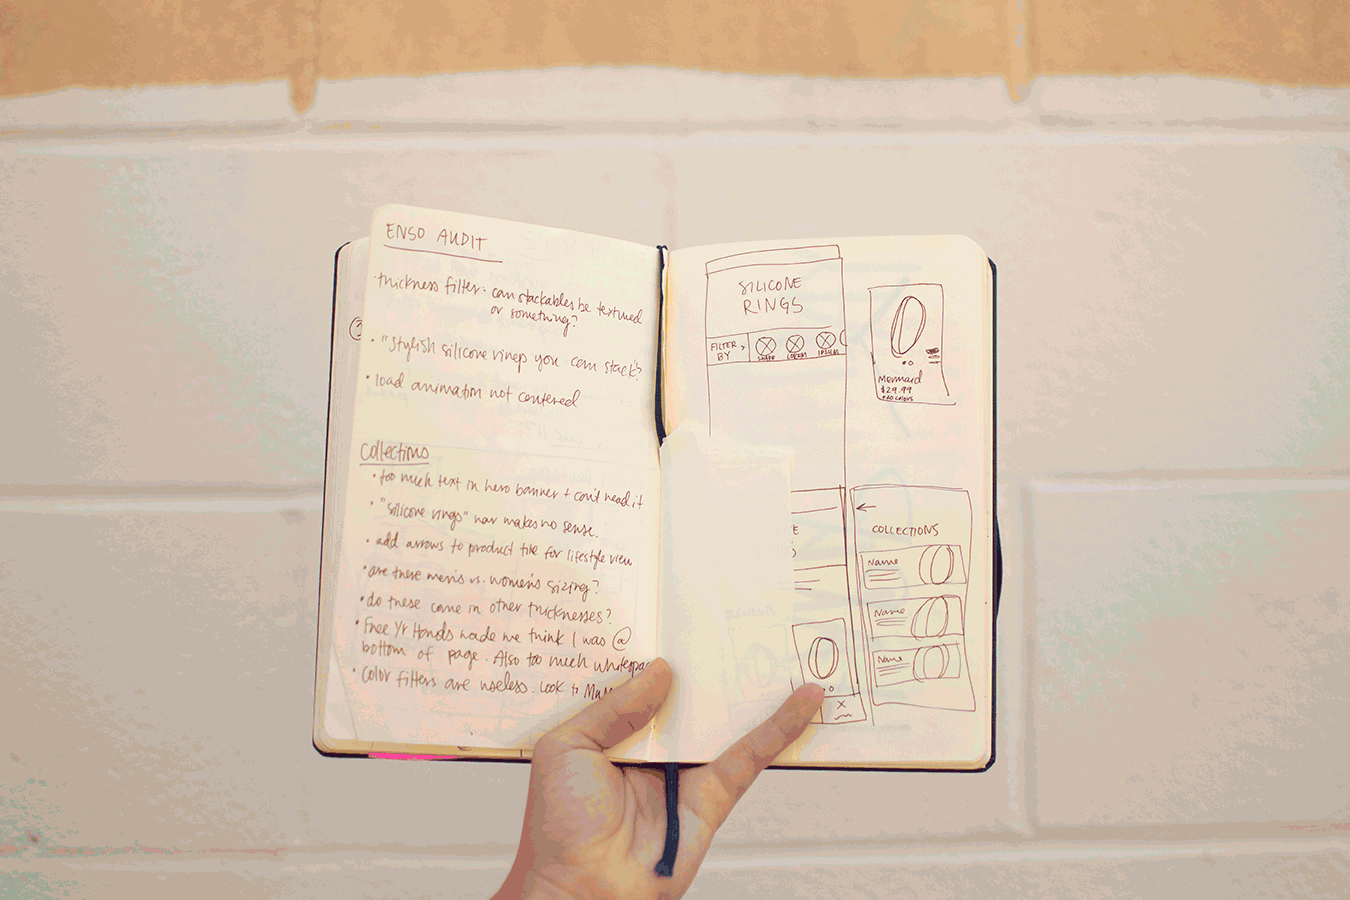 ENSO AUDIT
• thickness filter: can stackables be textured
or something?
• "Stylish silicone rings you can stack"?
• load animation not centered
Collections
• too much text in hero banner + can't read it
• "silicone rings" nav makes no sense.
• add arrows to product tile for lifestyle view
• are these men's vs. women's sizing?
• do these come in other thicknesses?
• Free Yr Hands made me think I was @
bottom of page. Also too much whitespac
• Color filters are useless. Look to
SILICONE
RINGS
FILTER
BY >
SHAPE
LOREM
IPSUM
Mermaid
$29.99
+20 COLORS
E
←
COLLECTIONS
Name
Name
Name
X